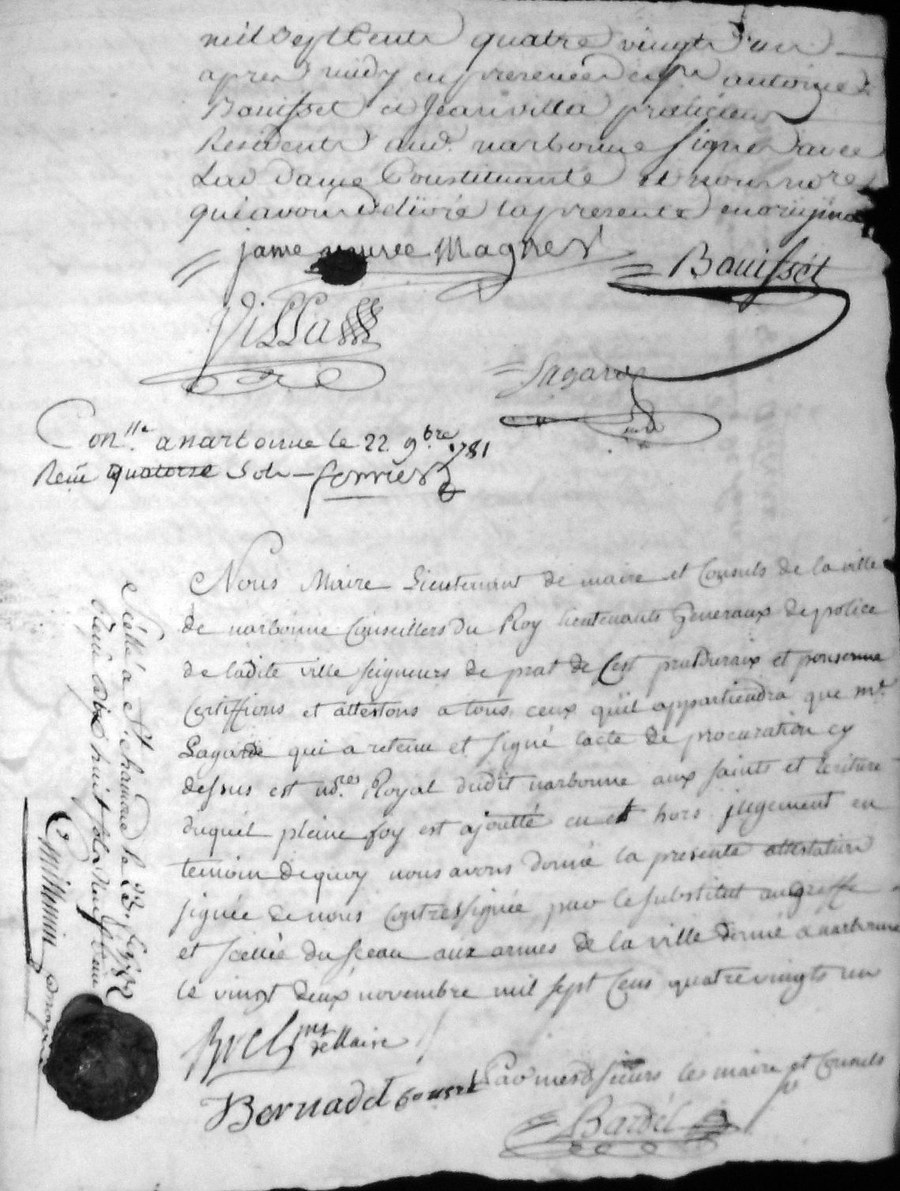 mil sept Cents quatre vingts un
apres midy en presence de sr antoine
Bouisset et Jean villa praticiens
Residents aud. narbonne signes avec
Lad dame Constituante et nous nore
qui avons delivré la presente en original
Magnes
Bouisset
Villa
Lagarde
Con.lle a narbonne le 22. 9bre 1781
Reçu quatorze sols
Nous Maire Lieutenant de maire et Consuls de la ville
de narbonne Conseillers Du Roy lieutenants Generaux de police
de ladite ville seigneurs de prat de Cest
Certiffions et attestons a tous ceux quil appartiendra que mr
Lagarde qui a retenu et signé lacte de procuration cy
dessus est Royal dudit narbonne aux saints et Ecriture
duquel pleine foy est ajoutté en et hors jugement en
temoin de quoy nous avons donné la presente attestation
signée de nous Contressignée par le substitut au greffe
et scellée du sceau aux armes de la ville donné a narbonne
le vingt deux novembre mil sept Cens quatre vingts un
de Maire
Bernadel Consul
Par mesd sieurs les maire et Consuls
Bardel
Scellé a St. chamond le
Reçu dix huit sols